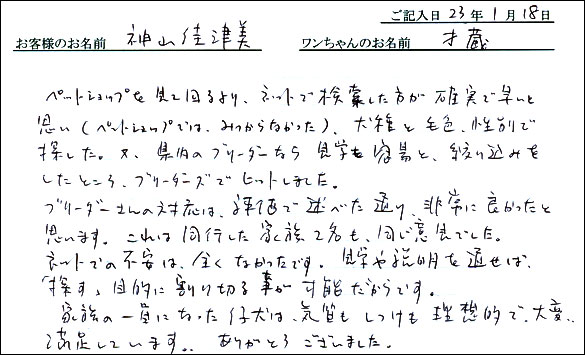 ご記入日 23年 1月 18日
お客様のお名前 神山佳津美 ワンちゃんのお名前 才蔵
ペットショップを見て回るより、ネットで検索した方が確実で早いと
思い(ペットショップでは、みつからなかった)、犬種と毛色、性別で
探した。又、県内のブリーダーなら見学も容易と、絞り込みを
したところ、ブリーダーズでヒットしました。
ブリーダーさんの対応は、評価で述べた通り、非常に良かったと
思います。これは同行した家族2名も、同じ意見でした。
ネットでの不安は、全くなかったです。見学や説明を通せば、
「探す」目的に割り切る事が可能だからです。
家族の一員になった仔犬は、気質もしつけも理想的で、大変、
満足しています。ありがとうございました。